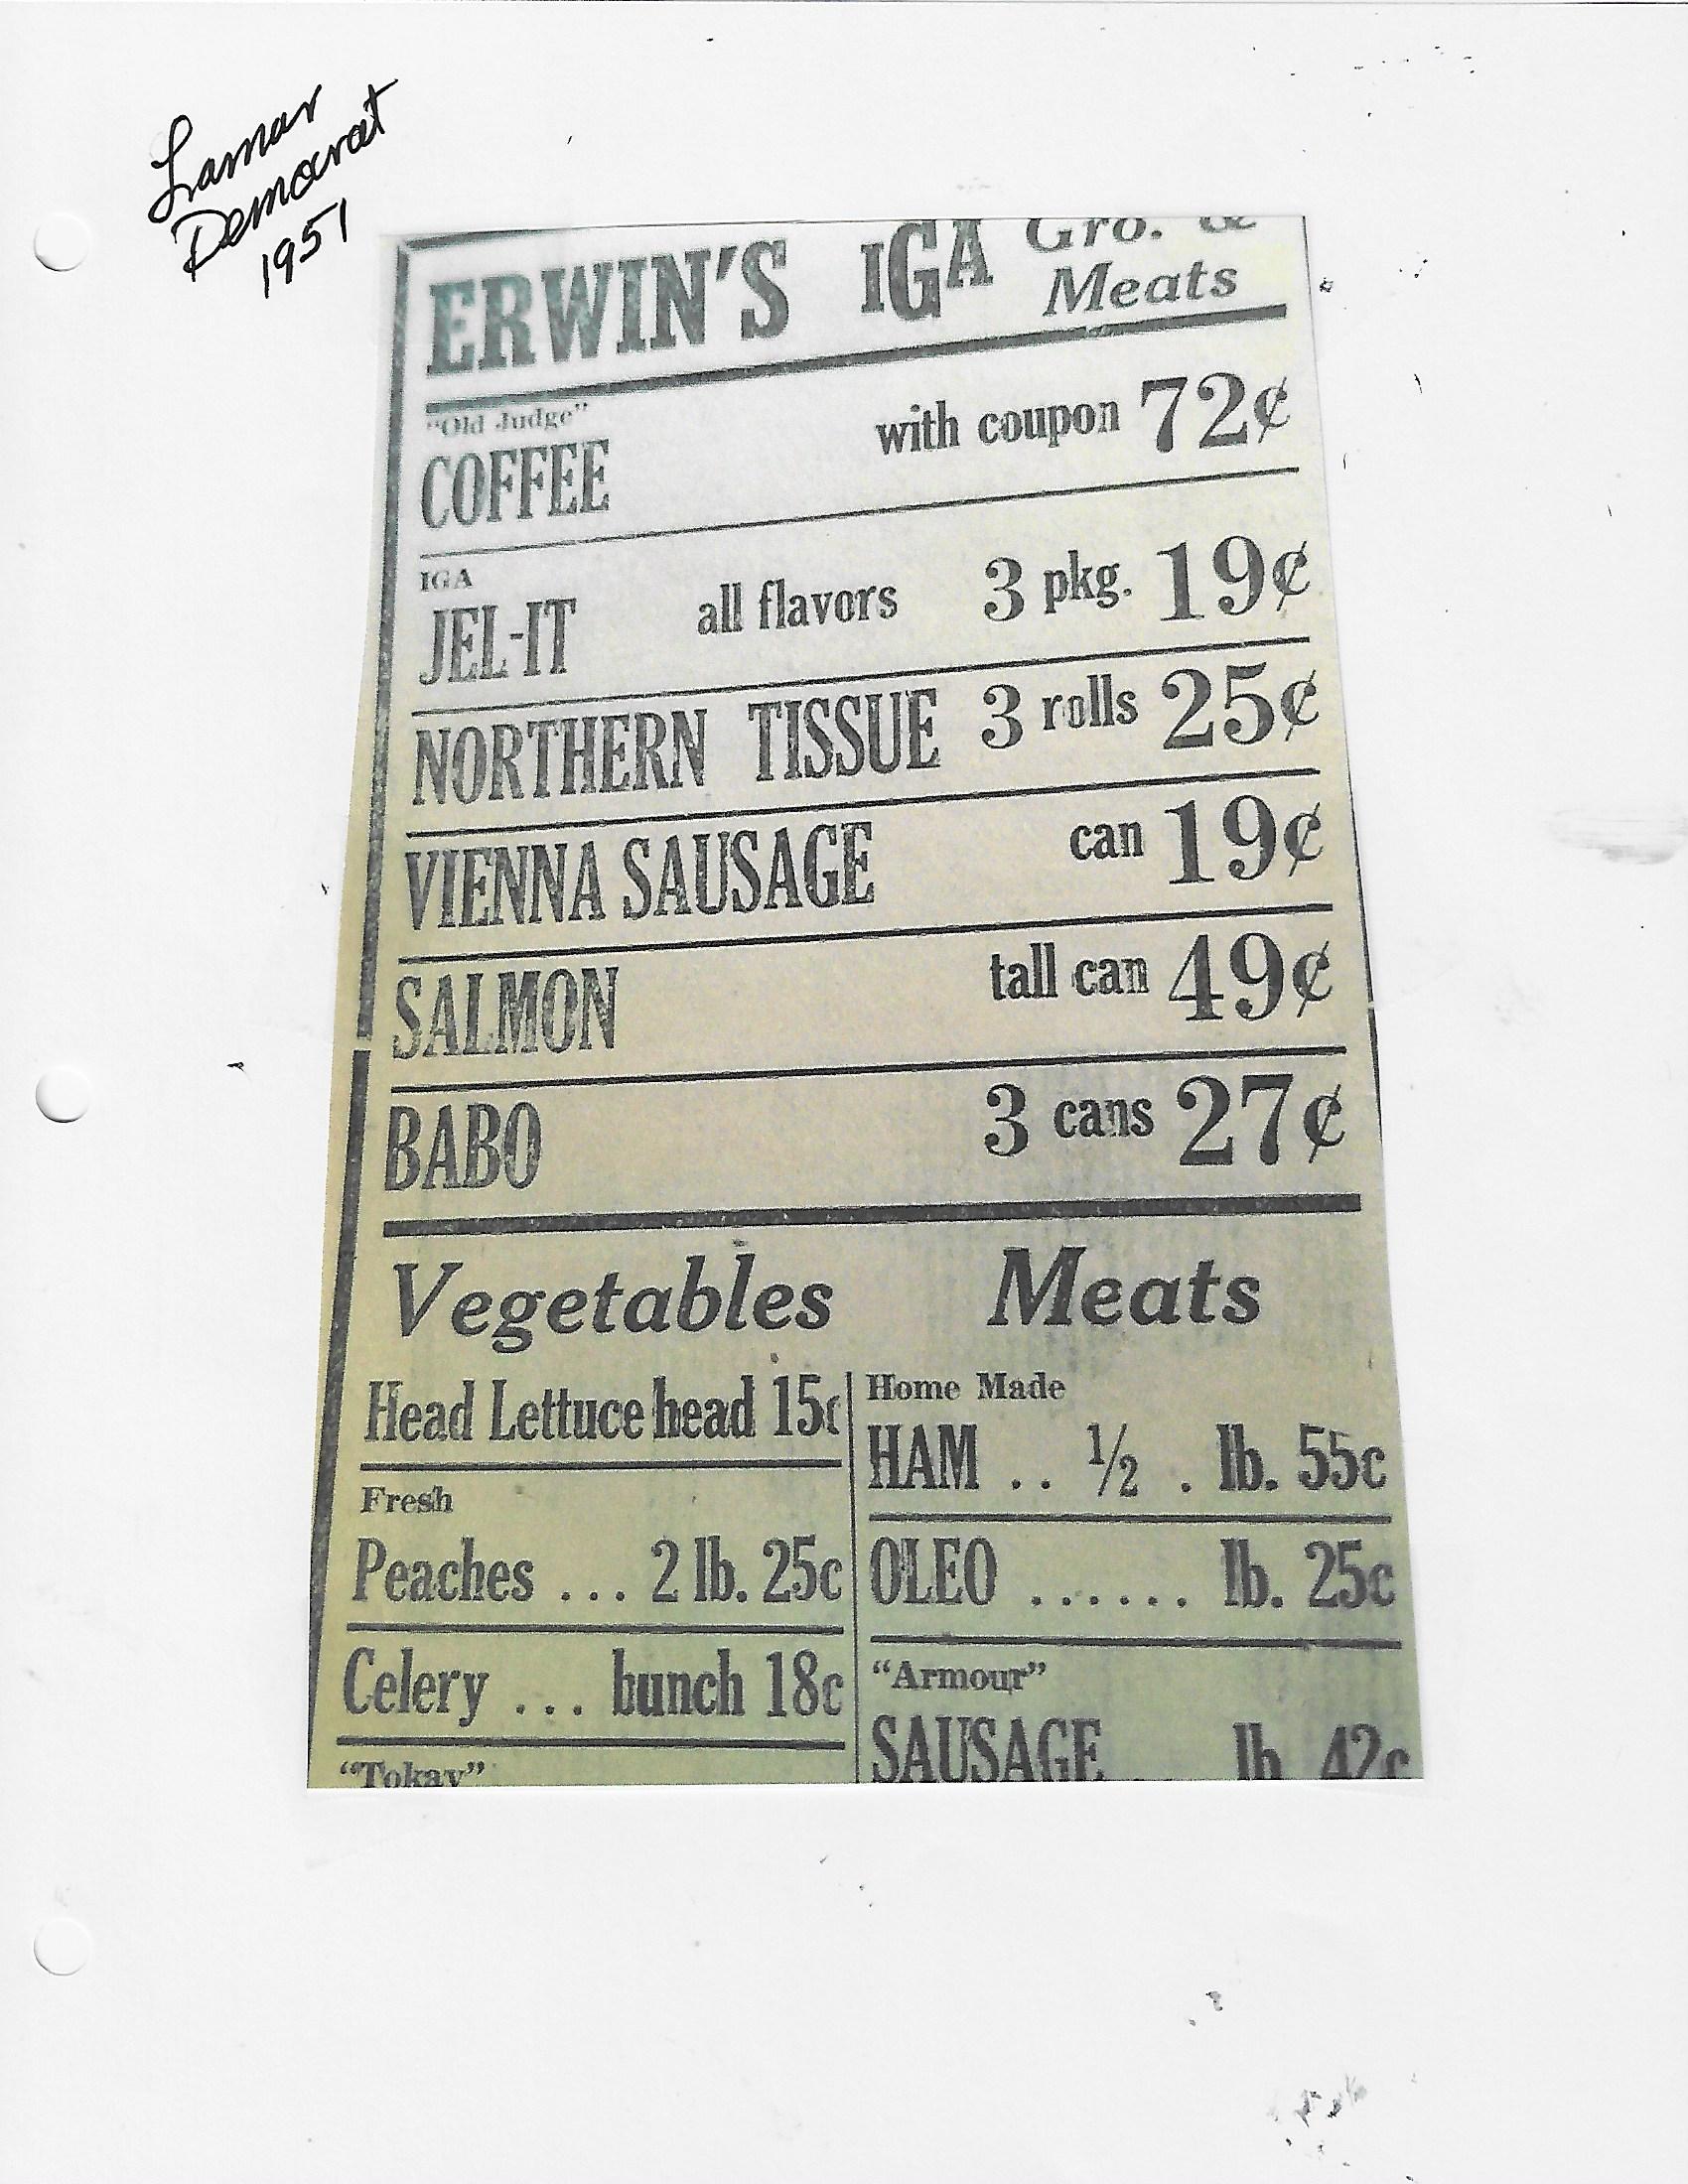 Lamar
Democrat
1951
ERWIN'S IGA Gro. &
Meats
"Old Judge"
COFFEE with coupon 72¢
IGA
JEL-IT all flavors 3 pkg. 19¢
NORTHERN TISSUE 3 rolls 25¢
VIENNA SAUSAGE can 19¢
SALMON tall can 49¢
BABO 3 cans 27¢
Vegetables
Head Lettuce head 15c
Fresh
Peaches ... 2 lb. 25c
Celery ... bunch 18c
"Tokay"
Meats
Home Made
HAM .. ½ . lb. 55c
OLEO ...... lb. 25c
"Armour"
SAUSAGE .. lb. 42c